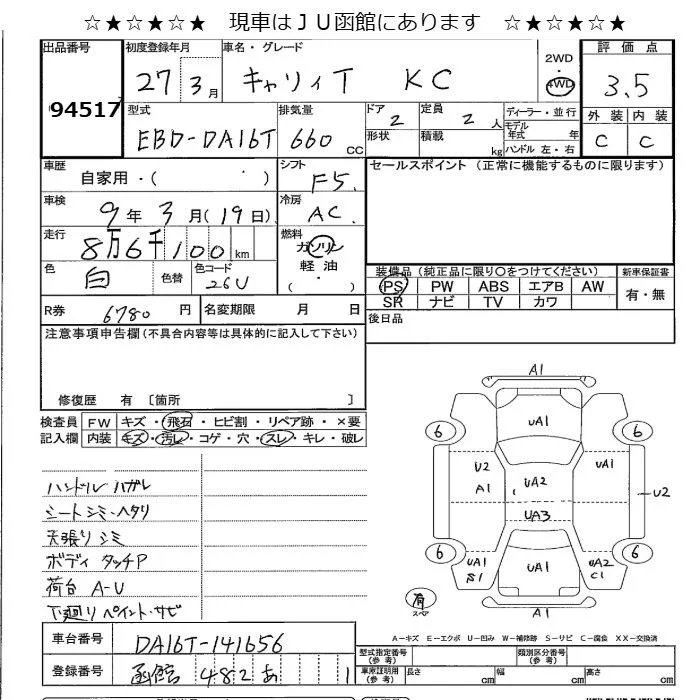 ☆★☆★☆★ 現車はJU函館にあります ☆★☆★☆★
出品番号 初度登録年月 車名・グレード 2WD 評価点
94517 27年3月 キャリィT KC 4WD 3.5
型式 排気量 ドア 定員 ディーラー・並行 外装 内装
EBD-DA16T 660cc 2 2人 モデル年式 年 C C
形状 積載 kg ハンドル 左・右
車歴 シフト セールスポイント(正常に機能するものに限ります)
自家用・( ) F5
車検 冷房
9年3月(19日) AC
走行 燃料
8万6千100km ガソリン
軽油
(・)
色 色替 色コード
白 26U
装備品(純正品に限り○をつけてください) 新車保証書
PS PW ABS エアB AW 有・無
SR ナビ TV カワ
R券 6780円 名変期限 月 日 後日品
注意事項申告欄(不具合内容等は具体的に記入して下さい)
修復歴 有 〔箇所 〕
検査員 FW キズ・飛石・ヒビ割・リペア跡・×要
記入欄 内装 キズ・汚レ・コゲ・穴・スレ・キレ・破レ
ハンドル ハガレ
シートシミ・ヘタリ
天張りシミ
ボディ タッチP
荷台 A-U
下廻りペイント・サビ
A1
6 UA1 6
U2 UA1
A1 UA2 U2
UA3
6 6
UA1 UA1 UA2
S1 C1
有 A1
スペア
A-キズ E-エクボ U-凹み W-補修跡 S-サビ C-腐食 XX-交換済
車台番号 DA16T-141656 型式指定番号(参考) 類別区分番号(参考)
登録番号 函館 482 あ 1 車庫証明用(参考) 長さ cm 幅 cm 高さ cm